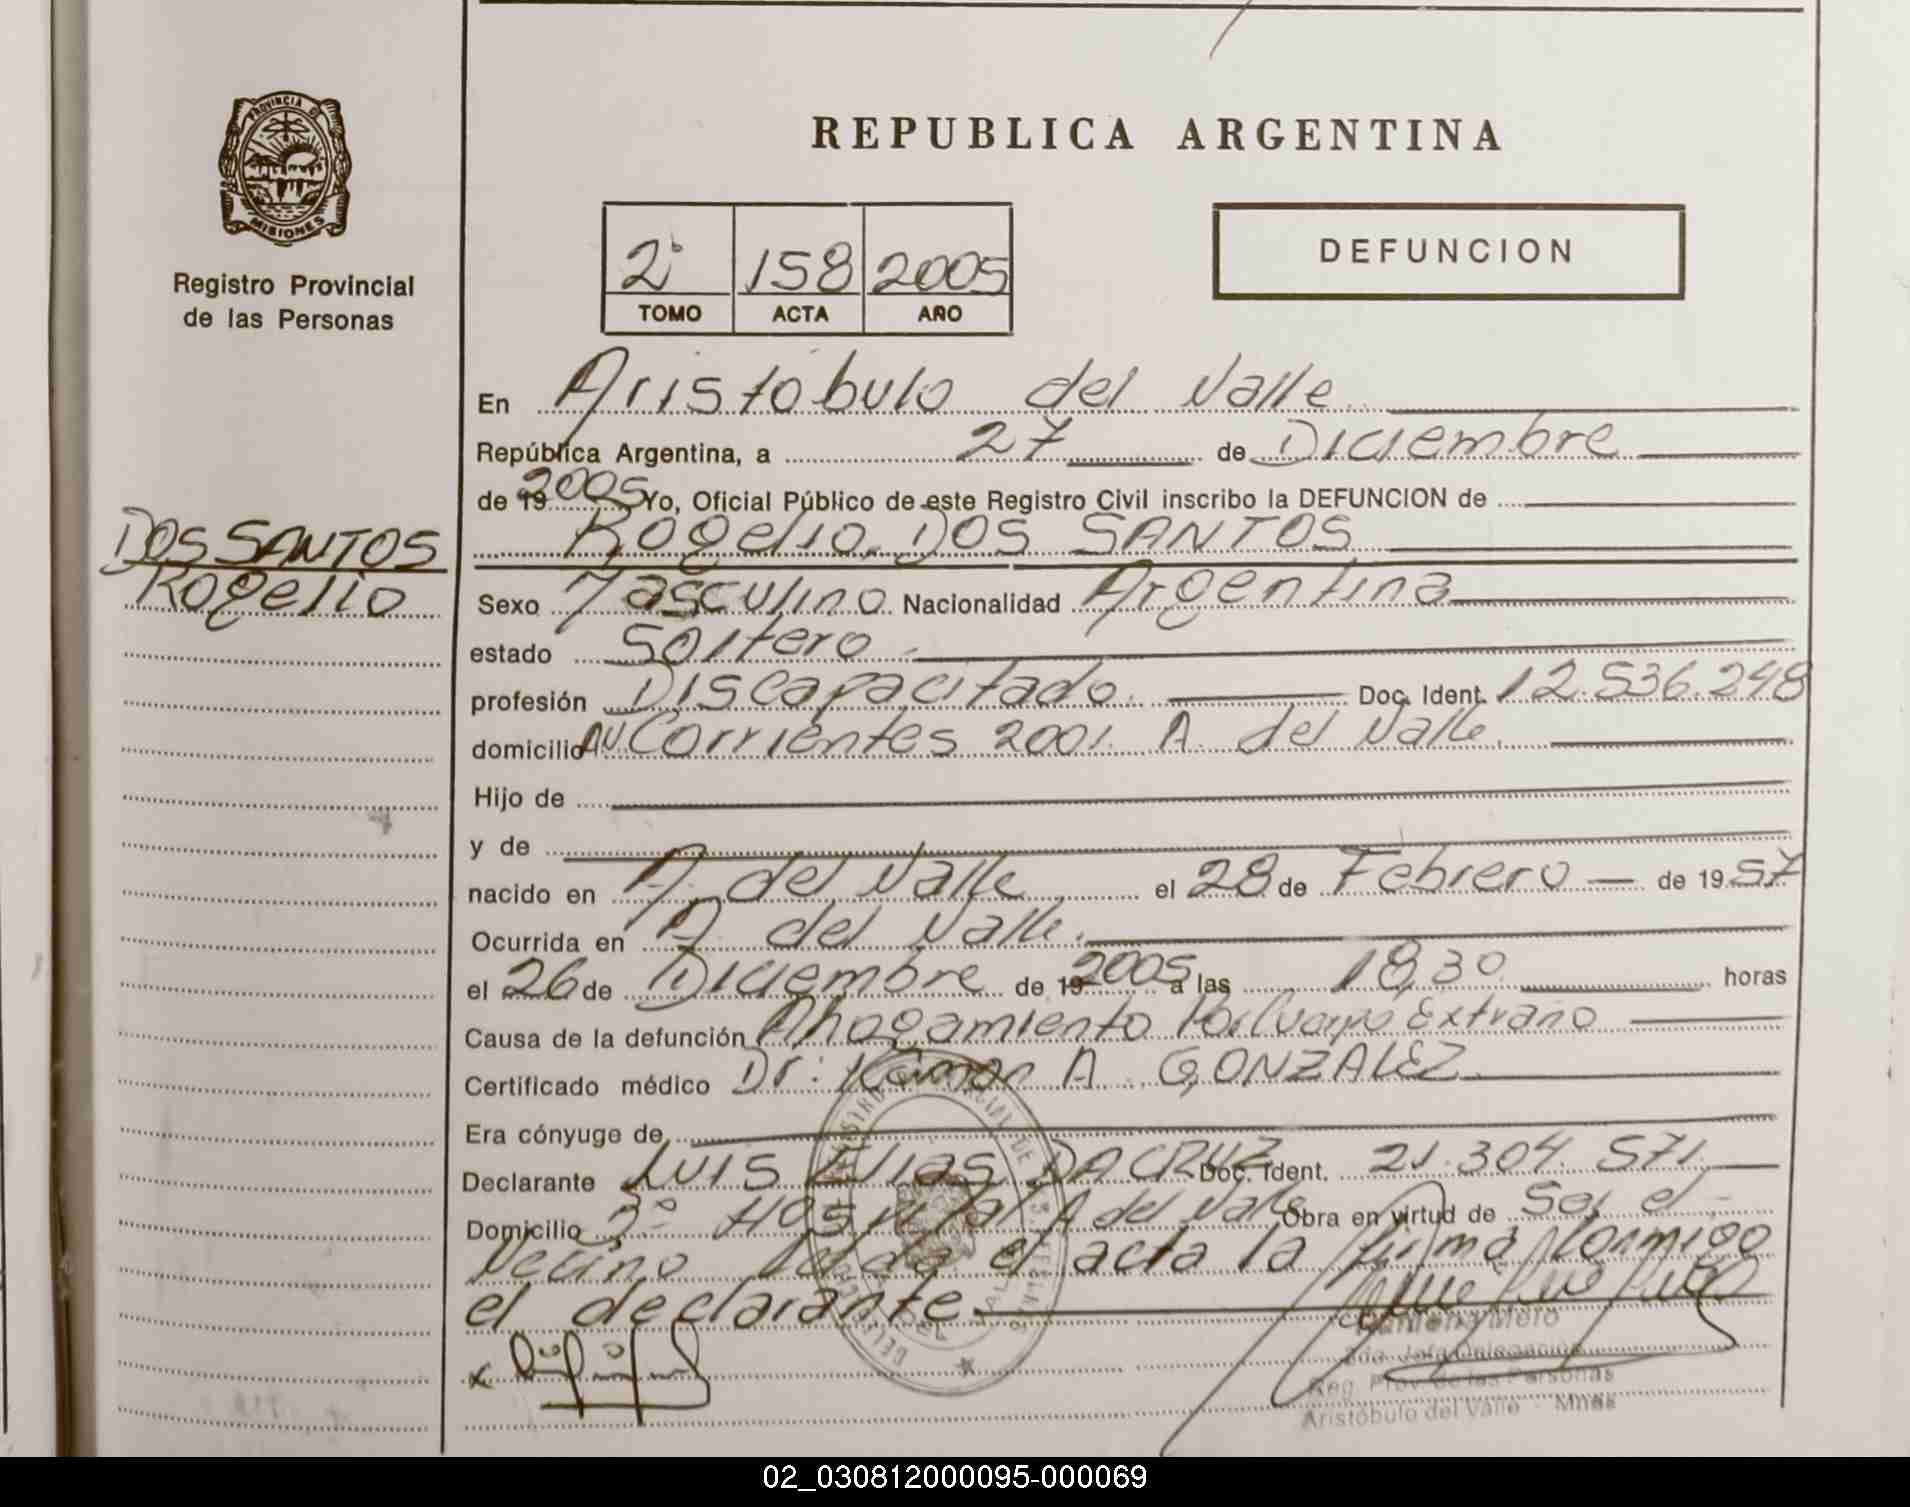 PROVINCIA D
MISIONES
Registro Provincial
de las Personas
DOS SANTOS
Rogelio
REPUBLICA ARGENTINA
2° 158 2005
TOMO ACTA AÑO
DEFUNCION
En Aristóbulo del Valle
República Argentina, a 27 de Diciembre
de 19 2005 Yo, Oficial Público de este Registro Civil inscribo la DEFUNCION de
Rogelio DOS SANTOS
Sexo Masculino Nacionalidad Argentina
estado Soltero
profesión Discapacitado. Doc. Ident. 12.536.248
domicilio AV Corrientes 2001. A. del Valle.
Hijo de
y de
nacido en A. del Valle el 28 de Febrero de 19 57
Ocurrida en A. del Valle.
el 26 de Diciembre de 19 2005 a las 18,30 horas
Causa de la defunción Ahogamiento Por Cuerpo Extraño
Certificado médico Dr: Ramon A. GONZALEZ
Era cónyuge de
Declarante LUIS Elias DA CRUZ Doc. Ident. 21.304.571
Domicilio B° Hospital A del Valle Obra en virtud de Ser el
Vecino Leida el acta la firma Conmigo
el declarante.
x
Melo
2da. Jefa Delegación
Reg. Prov. de las Personas
Aristóbulo del Valle - Mnes
02_030812000095-000069